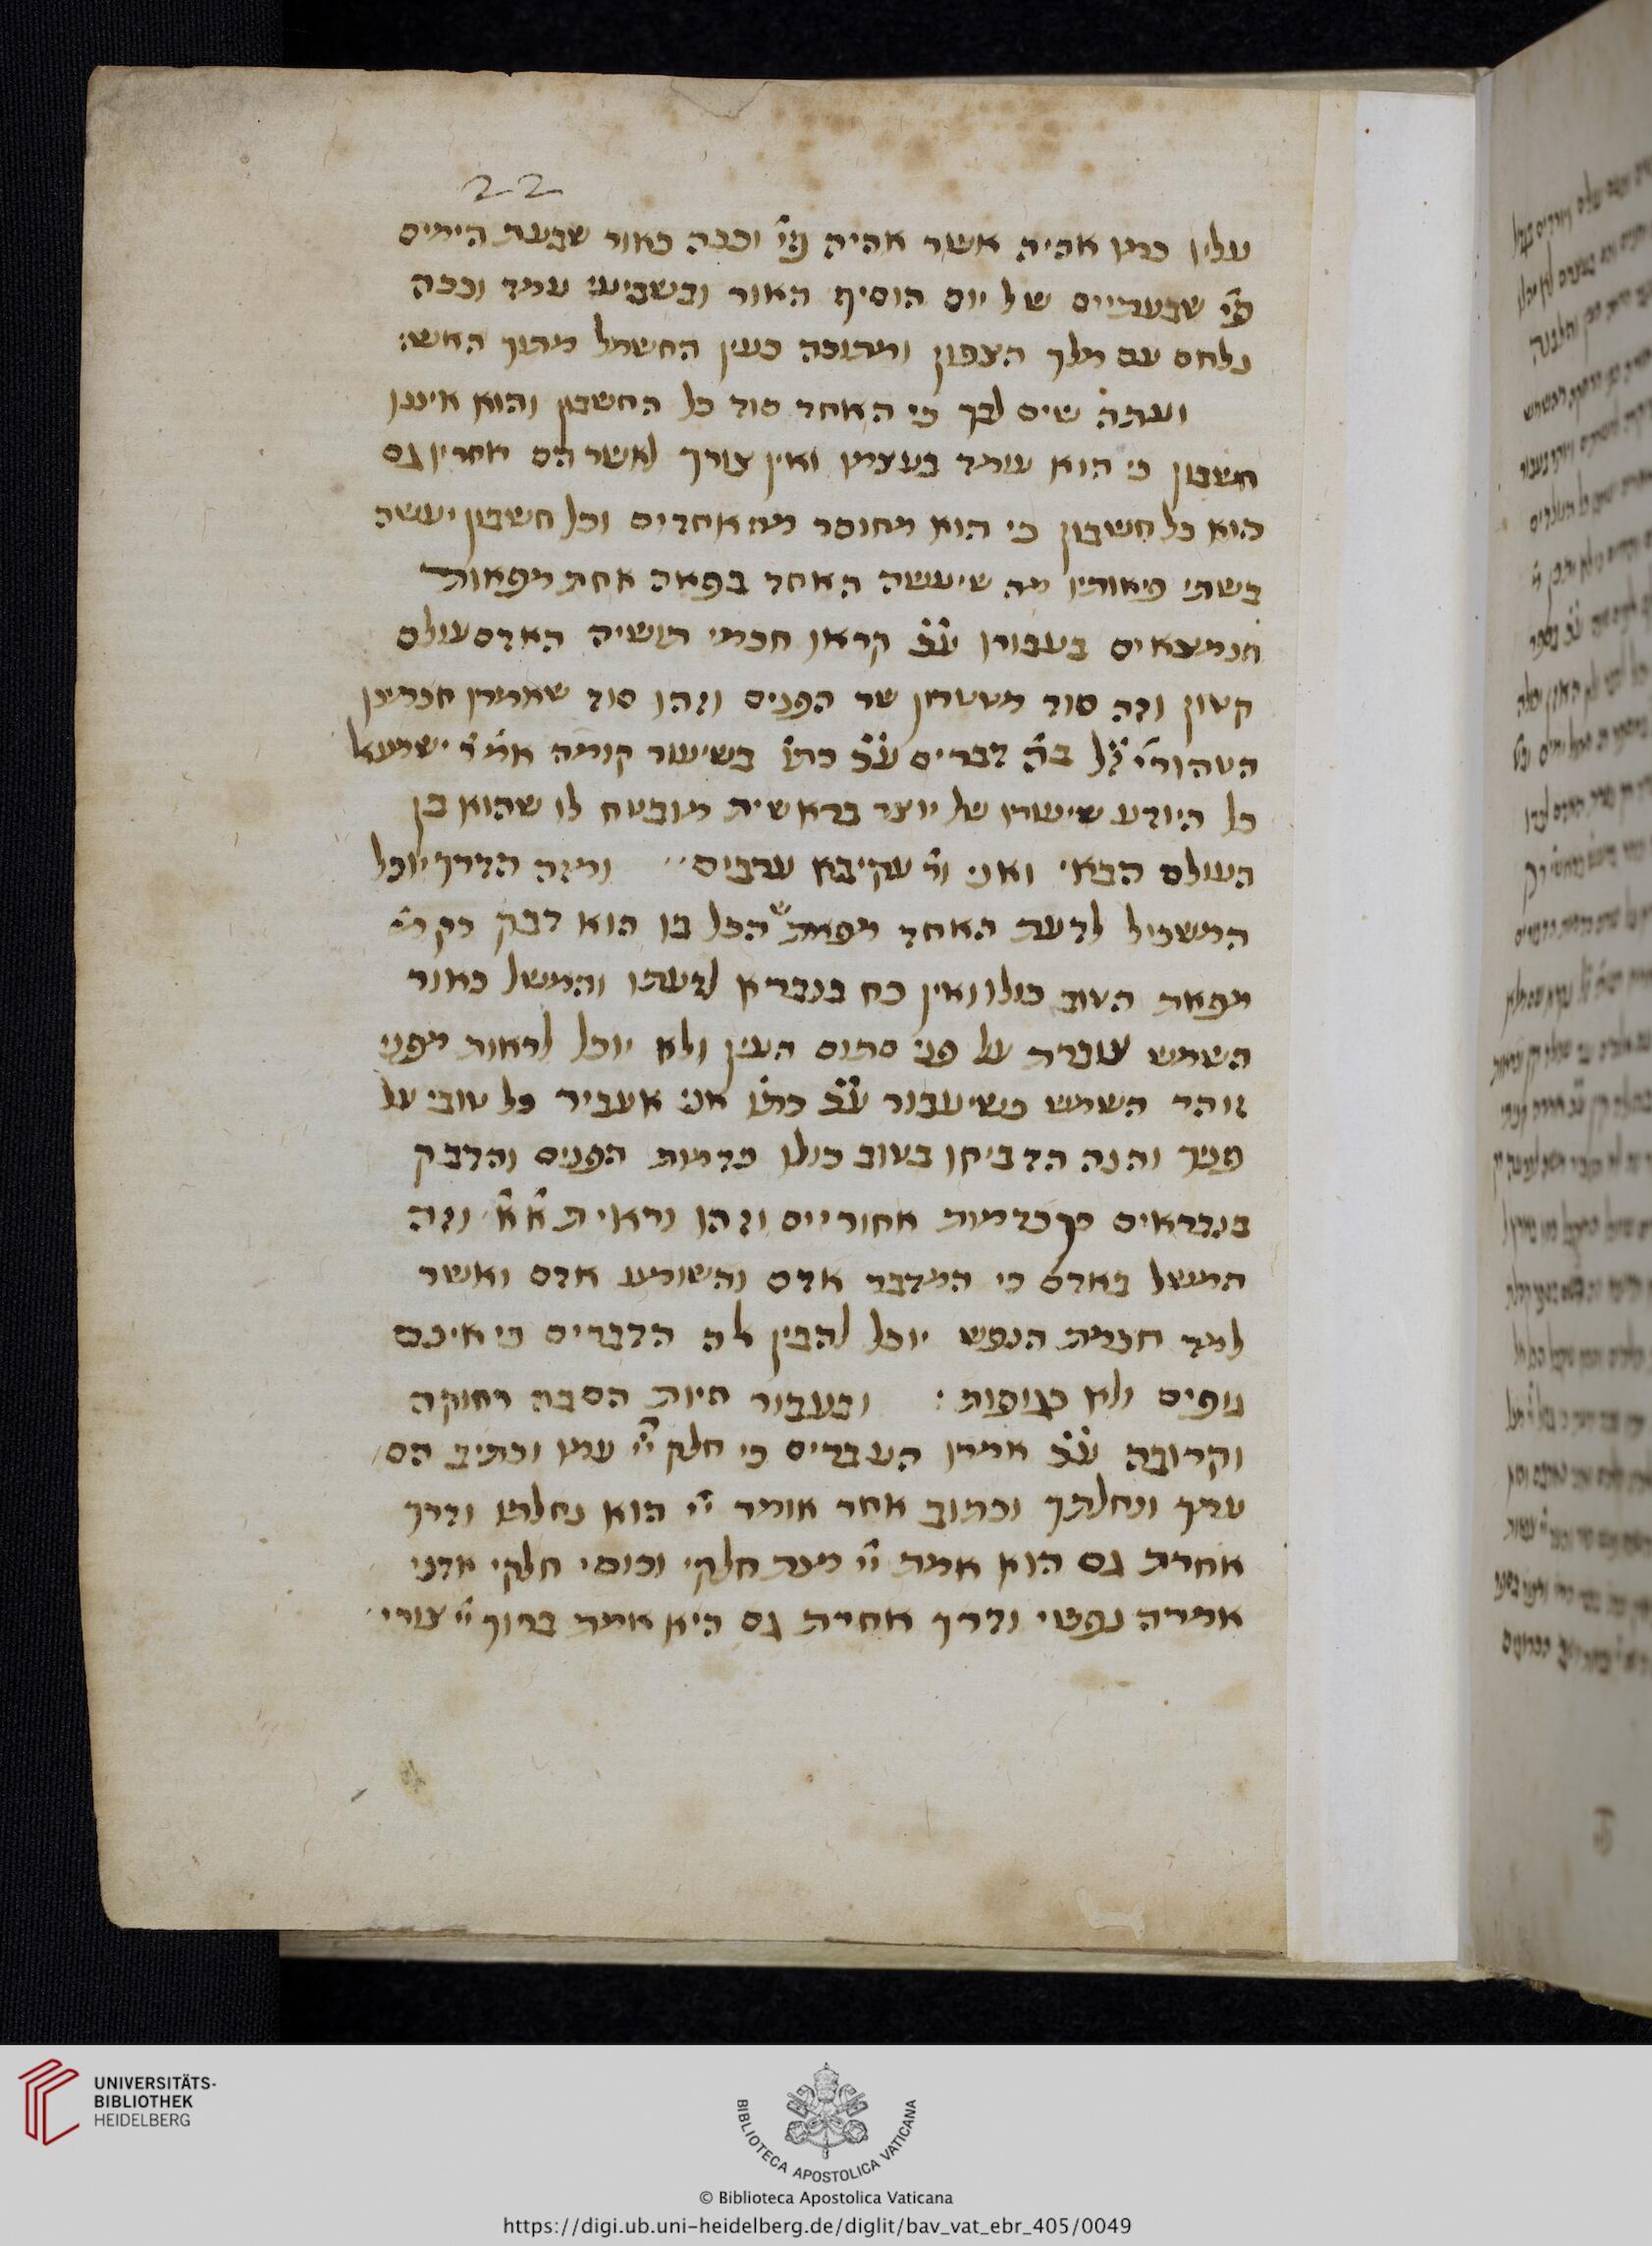 22
עליו כמו אהיה אשר אהיה פי' וככה כאור שבעת הימים
פי' שבעתיים של יום הוסיף האור ובשביעי עמד וככה
נלחם עם מלך הצפון ומתוכה כעין החשמל מתוך האש:
ועתה שים לבך כי האחד סוד כל החשבון והוא איננו
חשבון כי הוא עומד בעצמו ואין צורך לאשר הם אחריו גם
הוא כל חשבון כי הוא מחובר מהאחדים וכל חשבון יעשה
בשתי פיאותיו מה שיעשה האחד בפאה אחת מפאות
הנמצאים בעבורו ע"כ קראו חכמי תושיה האדם עולם
קטון וזה סוד מטטרון שר הפנים וזהו סוד שאמרו חכמינו
הטהורי' ז"ל בה דברים ע"כ כתו' בשיעור קומה אמ' ר' ישמעאל
כל היודע שיעורו של יוצר בראשית מובטח לו שהוא בן
העולם הבא ואני ור' עקיבא ערבים ומזה הדרך יוכל
המשכיל לדעת האחד מפאת שהכל בו הוא דבק רק מ'
מפאת הטוב כולו ואין כח בנברא לדעתו והמשל כאור
השמש עוברת על פני סתום העין ולא יוכל לראות מפני
זוהר השמש כשיעבור ע"כ כתו' אני אעביר כל טובי על
פניך והנה הדביקו בטוב כולו כדמות הפנים והדבק
בנבראים כך כדמות אחוריים וזהו וראית א' א' וזה
המשל באדם כי המדבר אדם והשומע אדם ואשר
למד חכמת הנפש יוכל להבין אלה הדברים כי אינם
גופים ולא כגופות: ובעבור היות הסבה רחוקה
וקרובה ע"כ אמרו העברים כי חלק יי' עמו וכתיב הם
עמך ונחלתך וכתוב אחר אומר יי' הוא נחלתו ודרך
אחרת גם הוא אמת יי' מנת חלקי וכוסי חלקי אדני
אמרה נפשי ודרך אחרת גם היא אמת ברוך יי' צורי
UNIVERSITÄTS-
BIBLIOTHEK
HEIDELBERG
BIBLIOTECA APOSTOLICA VATICANA
© Biblioteca Apostolica Vaticana
https://digi.ub.uni-heidelberg.de/diglit/bav_vat_ebr_405/0049